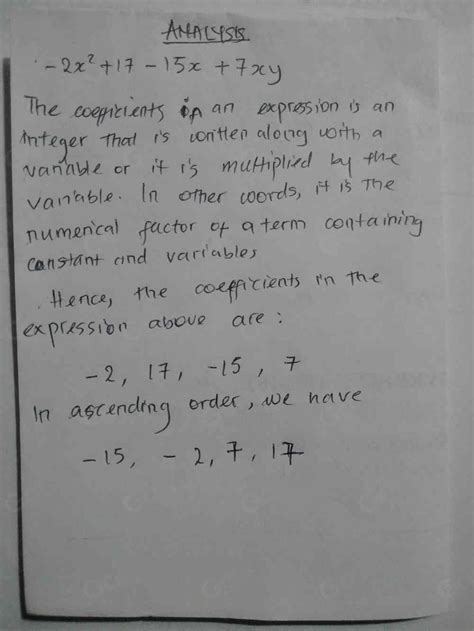 ANALYSIS
-2x²+17 -15x +7xy
The coefficients in an expression is an
integer that is written along with a
variable or it is multiplied by the
variable. In other words, it is the
numerical factor of a term containing
constant and variables
Hence, the coefficients in the
expression above are :
-2, 17, -15, 7
In ascending order, we have
-15, -2, 7, 17